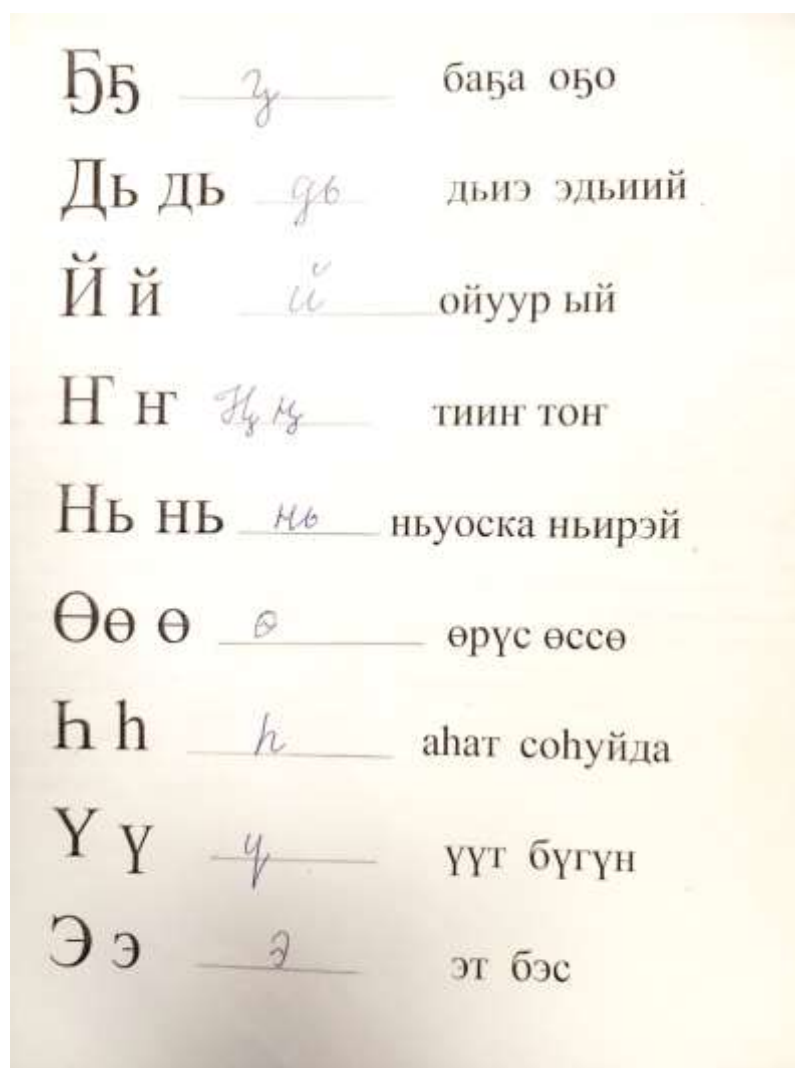 Ҕҕ ҕ баҕа оҕо
Дь дь дь дьиэ эдьиий
Й й й ойуур ый
Ҥ ҥ Ң ң тииҥ тоҥ
Нь нь нь ньуоска ньирэй
Өө ө ө өрүс өссө
Һ һ һ аһат соһуйда
Ү ү ү үүт бүгүн
Э э э эт бэс